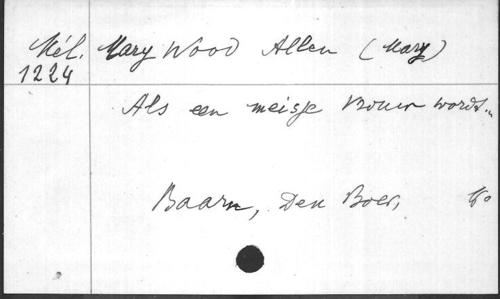 Mél. Mary Wood Allen (Mary)
1224
Als een meisje vrouw wordt..
Baarn, Den Boer,